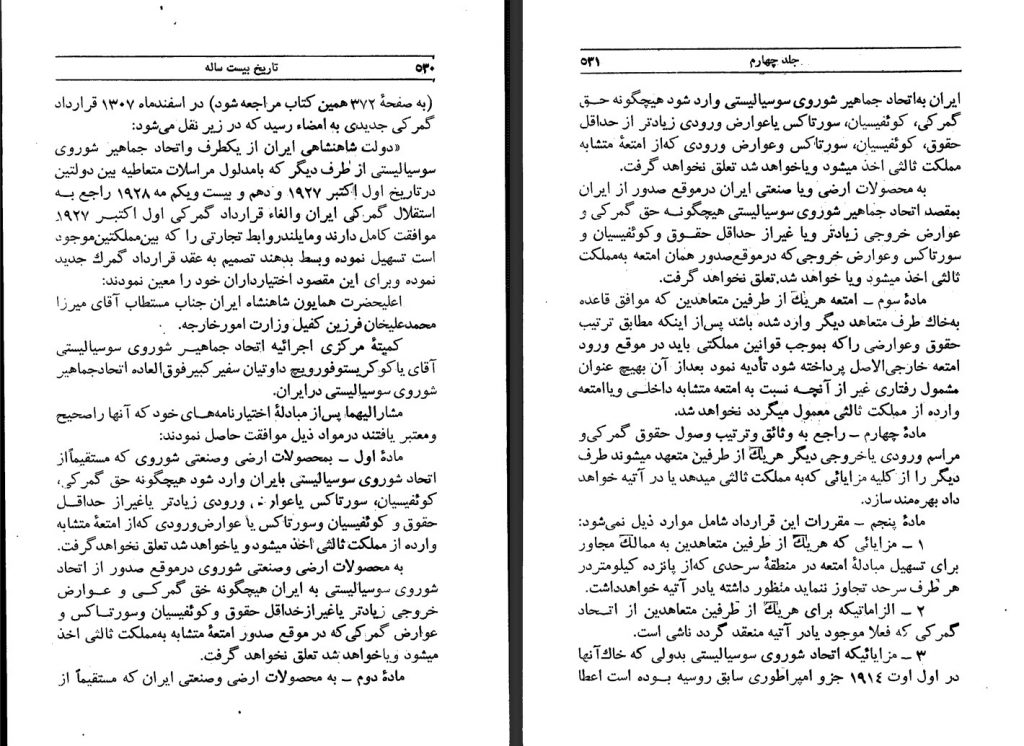 ۵۳۰ تاریخ بیست ساله
(به صفحهٔ ۳۷۲ همین کتاب مراجعه شود) در اسفندماه ۱۳۰۷ قرارداد
گمرکی جدیدی به امضاء رسید که در زیر نقل می‌شود:
«دولت شاهنشاهی ایران از یکطرف واتحاد جماهیر شوروی
سوسیالیستی از طرف دیگر که بامدلول مراسلات متعاطیه بین دولتین
درتاریخ اول اکتبر ۱۹۲۷ و دهم و بیست ویکم مه ۱۹۲۸ راجع به
استقلال گمرکی ایران والغاء قرارداد گمرکی اول اکتبر ۱۹۲۷
موافقت کامل دارند ومایلندروابط تجارتی را که بین‌مملکتین‌موجود
است تسهیل نموده وبسط بدهند تصمیم به عقد قرارداد گمرك جدید
نموده وبرای این مقصود اختیارداران خود را معین نمودند:
اعلیحضرت همایون شاهنشاه ایران جناب مستطاب آقای میرزا
محمدعلیخان فرزین کفیل وزارت امورخارجه.
کمیتهٔ مرکزی اجرائیه اتحاد جماهیر شوروی سوسیالیستی
آقای یاکو کریستوفورویچ داوتیان سفیرکبیرفوق‌العاده اتحادجماهیر
شوروی سوسیالیستی درایران.
مشارالیهما پس‌از مبادلهٔ اختیارنامه‌های خود که آنها راصحیح
ومعتبر یافتند درمواد ذیل موافقت حاصل نمودند:
مادهٔ اول ــ بمحصولات ارضی وصنعتی شوروی که مستقیماً از
اتحاد شوروی سوسیالیستی بایران وارد شود هیچگونه حق گمرکی،
کوئفیسیان، سورتاکس یاعوارض ورودی زیادتر یاغیراز حداقل
حقوق و کوئفیسیان وسورتاکس یا عوارض‌ورودی که‌از امتعهٔ متشابه
وارده از مملکت ثالثی اخذ میشود و یاخواهد شد تعلق نخواهدگرفت.
به محصولات ارضی وصنعتی شوروی درموقع صدور از اتحاد
شوروی سوسیالیستی به ایران هیچگونه خق گمرکی و عوارض
خروجی زیادتر یاغیرازحداقل حقوق و کوئفیسیان وسورتاکس و
عوارض گمرکی‌که در موقع صدور امتعهٔ متشابه به‌مملکت ثالثی اخذ
میشود ویاخواهد شد تعلق نخواهد گرفت.
مادهٔ دوم ــ به محصولات ارضی وصنعتی ایران که مستقیماً از
جلد چهارم ۵۳۱
ایران به‌اتحاد جماهیر شوروی سوسیالیستی وارد شود هیچگونه حق
گمرکی، کوئفیسیان، سورتاکس یاعوارض ورودی زیادتر از حداقل
حقوق، کوئفیسیان، سورتاکس وعوارض ورودی که‌از امتعهٔ متشابه
مملکت ثالثی اخذ میشود ویاخواهد شد تعلق نخواهد گرفت.
به محصولات ارضی ویا صنعتی ایران درموقع صدور از ایران
بمقصد اتحاد جماهیر شوروی سوسیالیستی هیچگونه حق گمرکی و
عوارض خروجی زیادتر ویا غیراز حداقل حقوق وکوئفیسیان و
سورتاکس وعوارض خروجی‌که درموقع‌صدور همان امتعه به‌مملکت
ثالثی اخذ میشود ویا خواهد شد تعلق نخواهد گرفت.
مادهٔ سوم ــ امتعه هریك از طرفین متعاهدین که موافق قاعده
به‌خاك طرف متعاهد دیگر وارد شده باشد پس‌از اینکه مطابق ترتیب
حقوق وعوارضی راکه بموجب قوانین مملکتی باید در موقع ورود
امتعه خارجی‌الاصل پرداخته شود تأدیه نمود بعداز آن بهیچ عنوان
مشمول رفتاری غیر از آنچه نسبت به امتعه متشابه داخلی ویاامتعه
وارده از مملکت ثالثی معمول میگردد نخواهد شد.
مادهٔ چهارم ــ راجع به وثائق وترتیب وصول حقوق گمرکی‌و
مراسم ورودی یاخروجی دیگر هریك از طرفین متعهد میشوند طرف
دیگر را از کلیه مزایائی که‌به مملکت ثالثی میدهد یا در آتیه خواهد
داد بهره‌مند سازد.
مادهٔ پنجم ــ مقررات این قرارداد شامل موارد ذیل نمی‌شود:
۱ ــ مزایائی که هریك از طرفین متعاهدین به ممالك مجاور
برای تسهیل مبادلهٔ امتعه در منطقهٔ سرحدی که‌از پانزده کیلومتردر
هر طرف سرحد تجاوز ننماید منظور داشته یادر آتیه خواهدداشت.
۲ ــ الزاماتیکه برای هریك از طرفین متعاهدین از اتحاد
گمرکی که فعلا موجود یادر آتیه منعقد گردد ناشی است.
۳ ــ مزایائیکه اتحاد شوروی سوسیالیستی بدولی که خاك‌آنها
در اول اوت ۱۹۱۴ جزو امپراطوری سابق روسیه بوده است اعطا